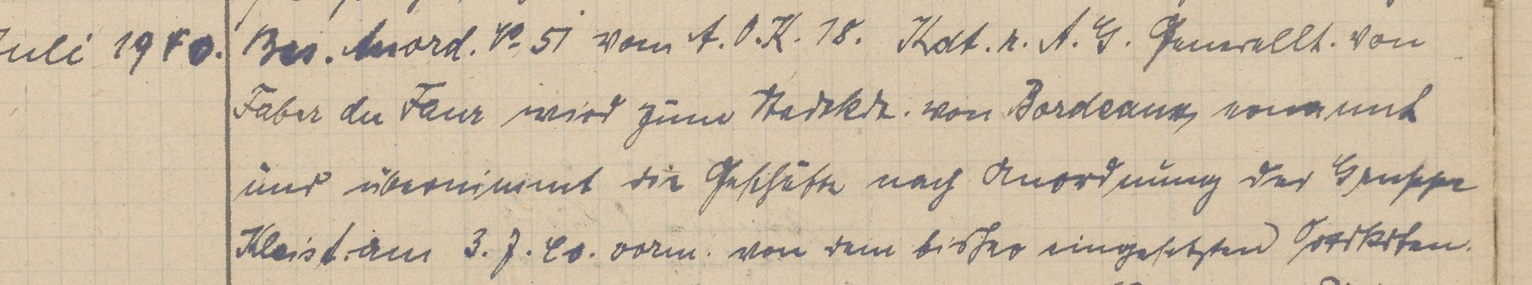 Juli 1940. Bes. Anord. No 51 vom A.O.K. 18. Kdt. r. A. G. Generallt. von
Faber du Faur wird zum Stadtkdt. von Bordeaux ernannt
und übernimmt die Geschäfte nach Anordnung der Gruppe
Kleist am 3.7.40. vorm. von dem bisher eingesetzten Ortskdten.